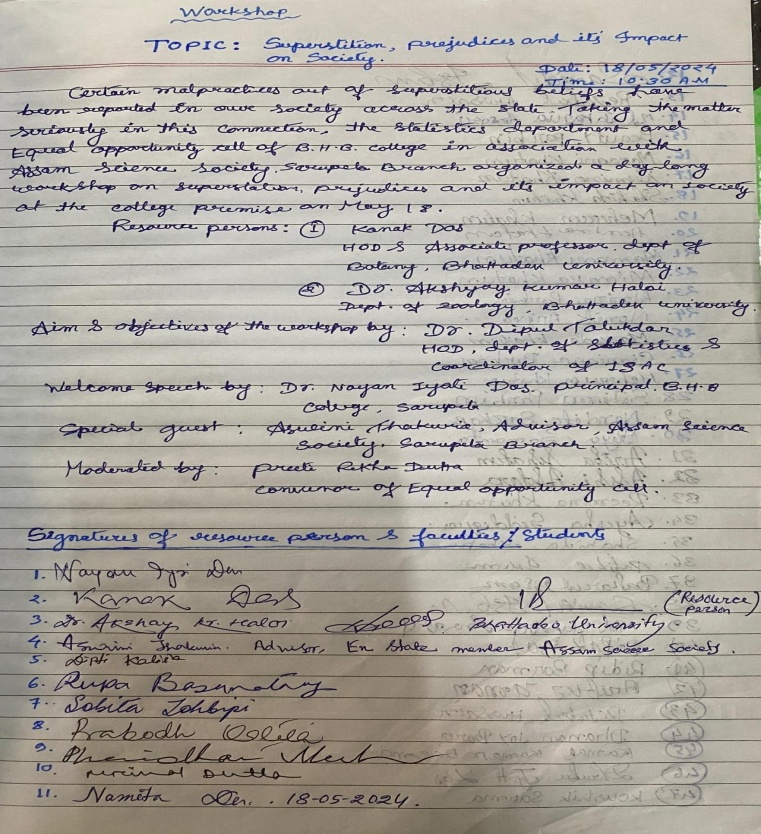 Workshop
TOPIC: Superstition, prejudices and its Impact
on Society.
Date: 18/05/2024
Time: 10:30 A.M
Certain malpractices out of superstitious beliefs have
been reported in our society across the state. Taking the matter
seriously in this connection, the statistics department and
Equal opportunity cell of B.H.B. college in association with
Assam Science Society, Sarupeta Branch organized a day long
workshop on superstation, prejudices and its impact on society
at the college premise on May 18.
Resource persons: ① Kanak Das
HOD & Associate professor, dept of
Botany, Bhattadev university
② Dr. Akshyay Kumar Haloi
Dept. of zoology, Bhattadev university.
Aim & objectives of the workshop by: Dr. Dipul Talukdar
HOD, dept. of Statistics &
coordinator of ISAC
Welcome speech by: Dr. Nayan Jyoti Das, principal, B.H.B
College, Sarupeta
Special guest: Aswini Thakuria, Advisor, Assam Science
Society, Sarupeta Branch.
Moderated by: Preeti Rekha Dutta
convenor of Equal opportunity cell.
Signatures of resource person & faculties/Students
1. Nayan Jyoti Das
2. Kanak Das (Resource person)
3. Dr. Akshay Kr. Haloi Bhattadev University
4. Aswini Thakuria. Advisor, Ex State member Assam Science Society.
5. Dipti Kalita
6. Rupa Basumatary
7. Sobita
8. Prabodh
9. Phanidhar
10. Dutta
11. Namita Das. 18-05-2024.